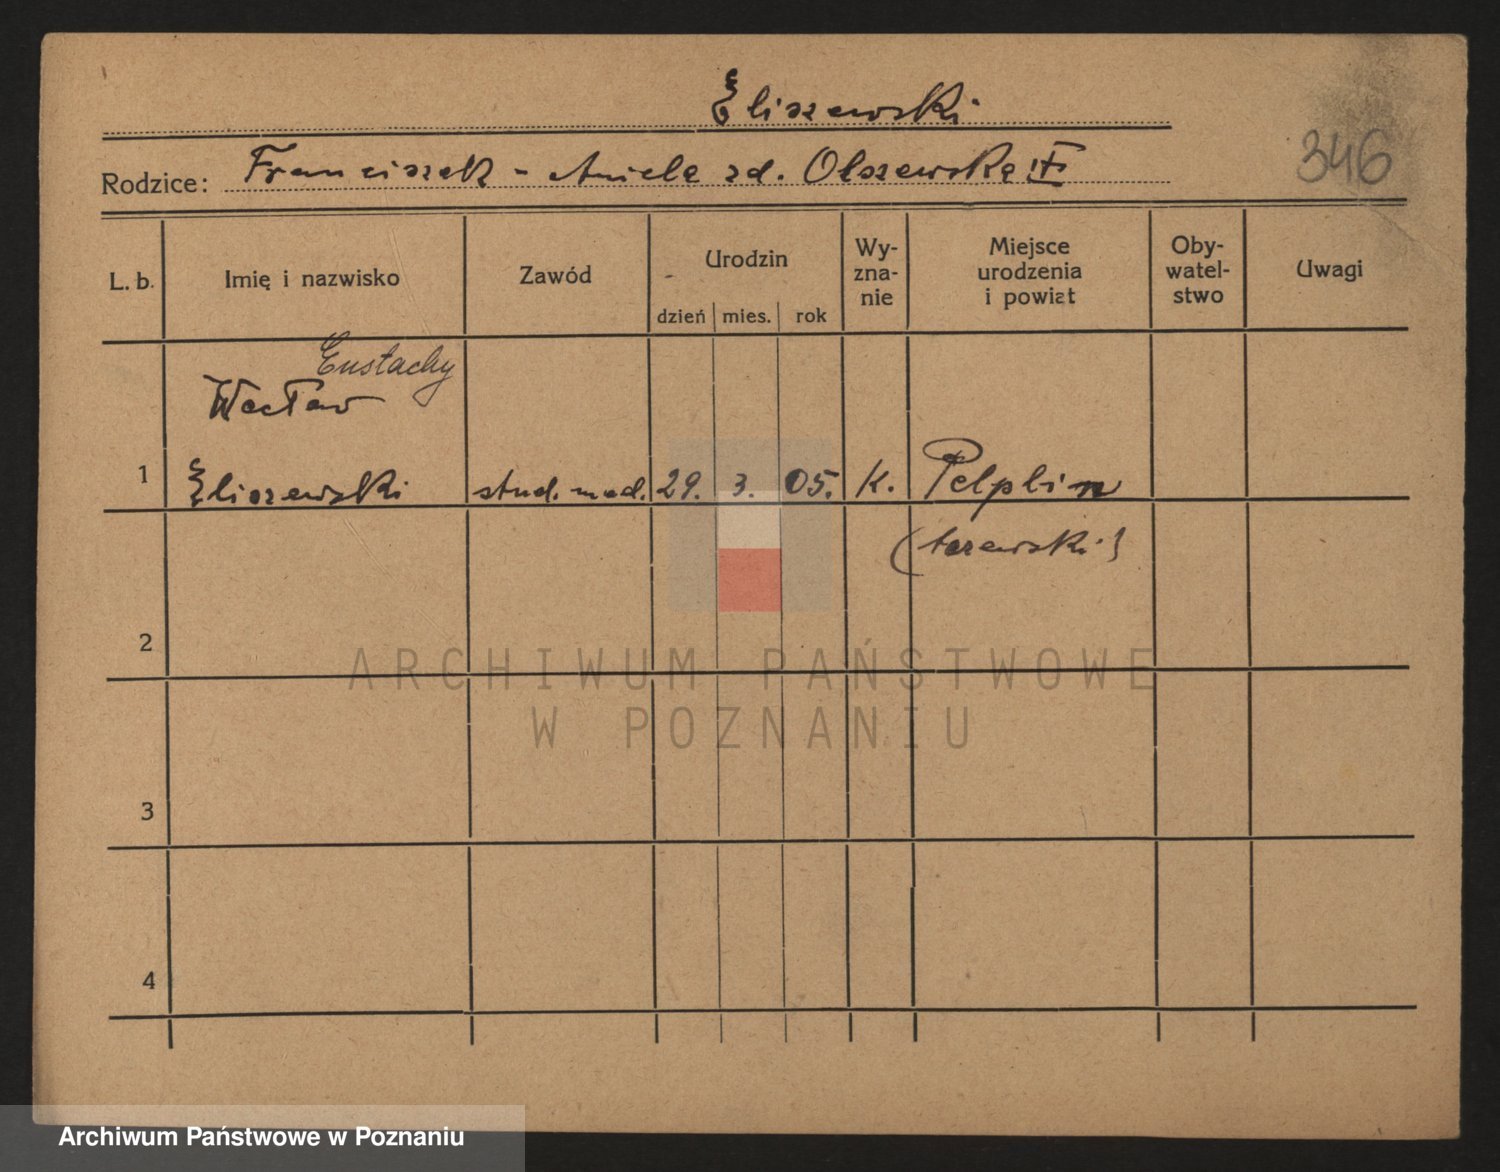 Eliszewski
346
Rodzice: Franciszek - Aniela zd. Olszewska
L. b. Imię i nazwisko Zawód Urodzin Wy-zna-nie Miejsce urodzenia i powiat Oby-watel-stwo Uwagi
dzień mies. rok
Eustachy
Wacław
1 Eliszewski stud. med. 29. 3. 05. K. Pelplin
2
3
4
ARCHIWUM PAŃSTWOWE
W POZNANIU
Archiwum Państwowe w Poznaniu